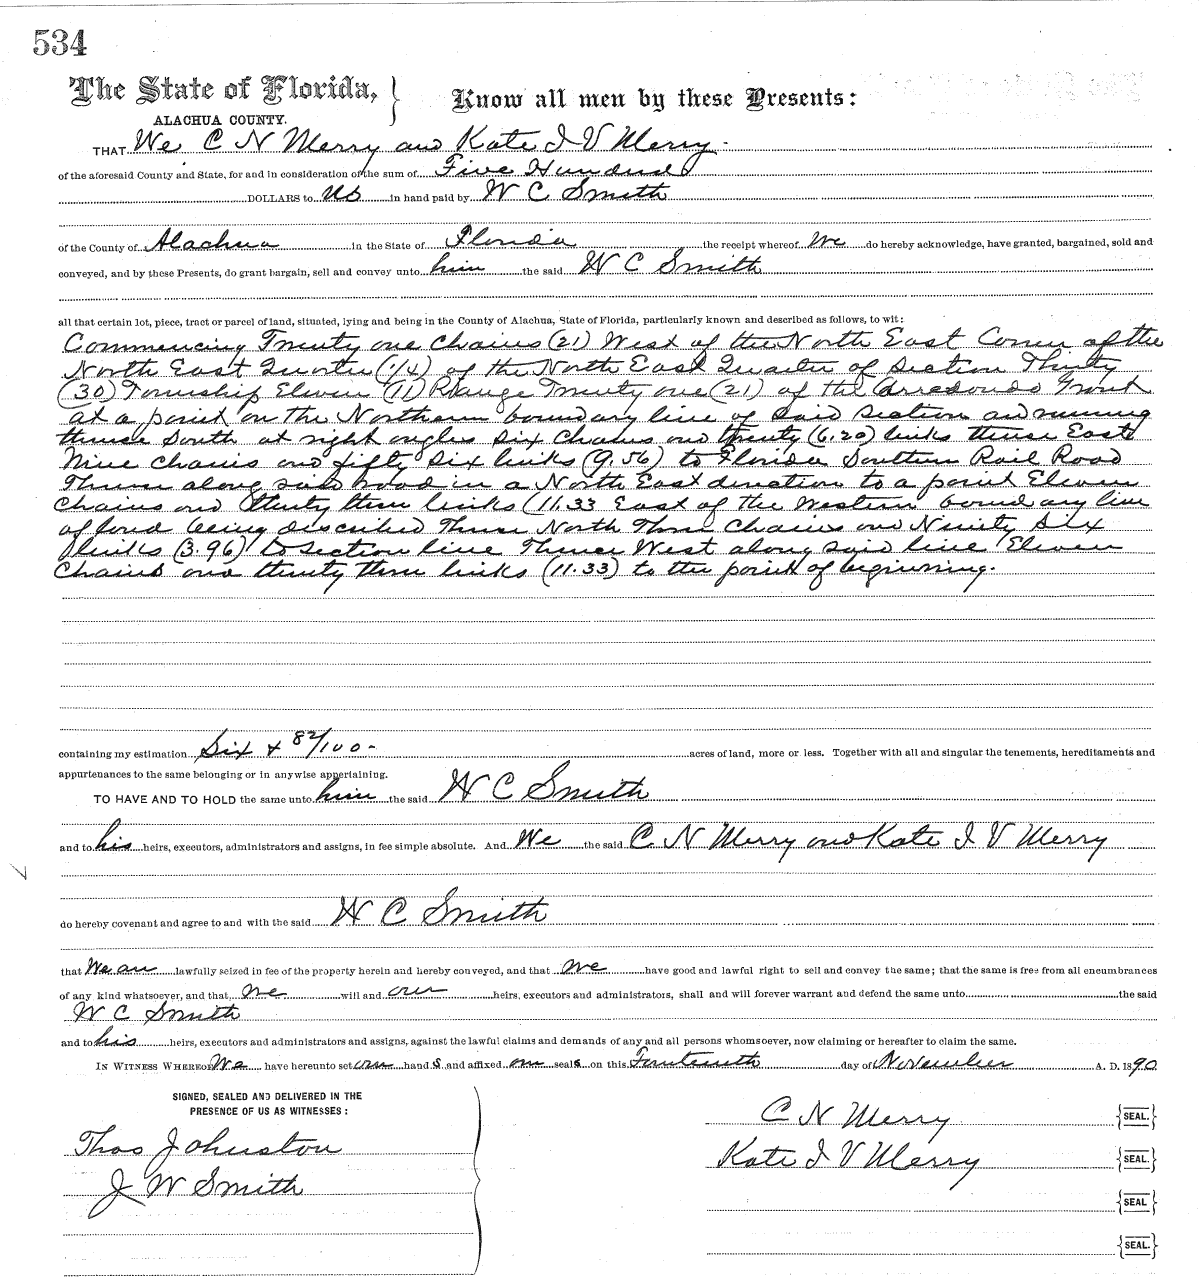 534
The State of Florida, } Know all men by these Presents:
ALACHUA COUNTY.
THAT We C N Merry and Kate I V Merry.
of the aforesaid County and State, for and in consideration of the sum of Five Hundred
DOLLARS to us in hand paid by W C Smith
of the County of Alachua in the State of Florida the receipt whereof We do hereby acknowledge, have granted, bargained, sold and
conveyed, and by these Presents, do grant bargain, sell and convey unto him the said W C Smith
all that certain lot, piece, tract or parcel of land, situated, lying and being in the County of Alachua, State of Florida, particularly known and described as follows, to wit:
Commencing Twenty one Chains (21) West of the North East Corner of the
North East Quarter (1/4) of the North East Quarter of Section Thirty
(30) Township Eleven (11) Range Twenty one (21) of the Arredondo Grant
at a point on the Northern boundary line of said section and running
thence South at right angles Six Chains and twenty (6.20) links thence East
Nine chains and fifty six links (9.56) to Florida Southern Rail Road
Thence along said road in a North East direction to a point Eleven
Chains and thirty three links (11.33 East of the Western boundary line
of land being described Thence North Three Chains and Ninety Six
links (3.96) to section line Thence West along said line Eleven
Chains and thirty three links (11.33) to the point of beginning.
containing my estimation Six & 82/100- acres of land, more or less. Together with all and singular the tenements, hereditaments and
appurtenances to the same belonging or in anywise appertaining.
TO HAVE AND TO HOLD the same unto him the said W C Smith
and to his heirs, executors, administrators and assigns, in fee simple absolute. And We the said C N Merry and Kate I V Merry
do hereby covenant and agree to and with the said W C Smith
that We are lawfully seized in fee of the property herein and hereby conveyed, and that We have good and lawful right to sell and convey the same; that the same is free from all encumbrances
of any kind whatsoever, and that, We will and our heirs, executors and administrators, shall and will forever warrant and defend the same unto the said
W C Smith
and to his heirs, executors and administrators and assigns, against the lawful claims and demands of any and all persons whomsoever, now claiming or hereafter to claim the same.
IN WITNESS WHEREOF We have hereunto set our hands and affixed our seals on this Fourteenth day of November A. D. 1890
SIGNED, SEALED AND DELIVERED IN THE
PRESENCE OF US AS WITNESSES:
C N Merry {SEAL.}
Thos Johnston
Kate I V Merry {SEAL.}
J W Smith
{SEAL}
{SEAL.}